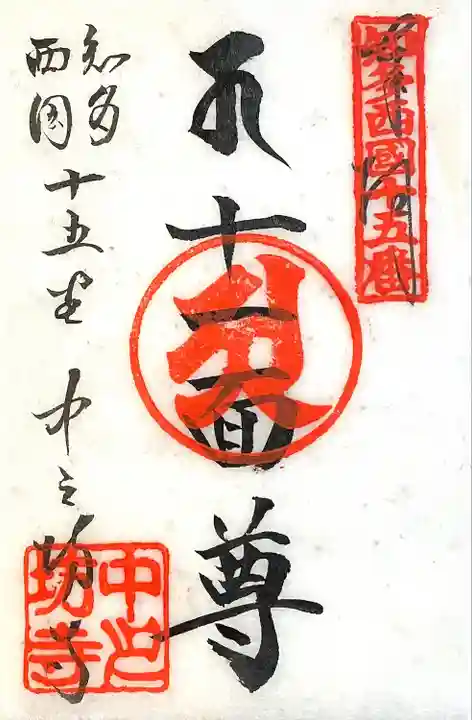 知多西國十五番
十一面尊
知多
西国
十五
中之坊寺
中之
坊寺